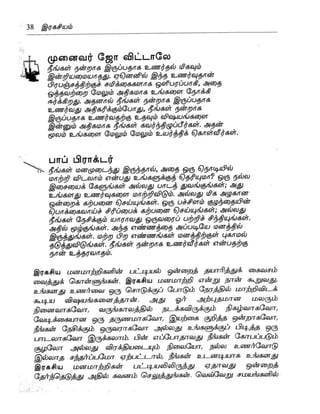 38 இரகசியம்
முனைவர் ஜோ விட்டாலே
நீங்கள் நன்றாக இருப்பதாக உணர்தல் மிகவும்
இன்றியமையாதது. ஏனெனில் இந்த உணர்வுதான்
பிரபஞ்சத்திற்குச் சமிக்கைகளாக ஒளிபரப்பாகி, அதை
ஒத்தவற்றை மேலும் அதிகமாக உங்களை நோக்கி
ஈர்க்கிறது. அதனால் நீங்கள் நன்றாக இருப்பதாக
உணர்வது அதிகரிக்கும்போது, நீங்கள் நன்றாக
இருப்பதாக உணர்வதற்கு உதவும் விஷயங்களை
இன்னும் அதிகமாக நீங்கள் கவர்ந்திழுப்பீர்கள். அதன்
மூலம் உங்களை மேலும் மேலும் உயர்த்திக் கொள்வீர்கள்.
பாப் பிராக்டர்
நீங்கள் மனமுடைந்து இருந்தால், அதை ஒரு நொடியில்
மாற்றி விடலாம் என்பது உங்களுக்குத் தெரியுமா? ஒரு நல்ல
இசையைக் கேளுங்கள் அல்லது பாடத் துவங்குங்கள்; அது
உங்களது உணர்வுகளை மாற்றிவிடும். அல்லது மிக அழகான
ஒன்றைக் கற்பனை செய்யுங்கள். ஒரு பச்சிளம் குழந்தையின்
பொக்கைவாய்ச் சிரிப்பைக் கற்பனை செய்யுங்கள்; அல்லது
நீங்கள் நேசிக்கும் யாராவது ஒருவரைப் பற்றிச் சிந்தியுங்கள்.
அதில் மூழ்குங்கள். அந்த எண்ணத்தை அப்படியே மனத்தில்
இருத்துங்கள். மற்ற பிற எண்ணங்கள் மனத்திற்குள் புகாமல்
தடுத்துவிடுங்கள். நீங்கள் நன்றாக உணர்வீர்கள் என்பதற்கு
நான் உத்தரவாதம்.
இரகசிய மனமாற்றிகளின் பட்டியல் ஒன்றைத் தயாரித்துக் கைவசம்
வைத்துக் கொள்ளுங்கள். இரகசிய மனமாற்றி என்று நான் கூறுவது,
உங்களது உணர்வை ஒரு சொடுக்குப் போடும் நேரத்தில் மாற்றிவிடக்
கூடிய விஷயங்களைத்தான். அது ஓர் அற்புதமான மலரும்
நினைவாகவோ, வருங்காலத்தில் நடக்கவிருக்கும் நிகழ்வாகவோ,
வேடிக்கையான ஒரு தருணமாகவோ, இயற்கை குறித்த ஒன்றாகவோ,
நீங்கள் நேசிக்கும் ஒருவராகவோ அல்லது உங்களுக்குப் பிடித்த ஒரு
பாடலாகவோ இருக்கலாம். பின் எப்போதாவது நீங்கள் கோபப்படும்
சூழலோ அல்லது விரக்தியடையும் நிலையோ, நல்ல உணர்வோடு
இல்லாத சந்தர்ப்பமோ ஏற்பட்டால், நீங்கள் உடனடியாக உங்களது
இரகசிய மனமாற்றிகள் பட்டியலிலிருந்து ஏதாவது ஒன்றைத்
தேர்ந்தெடுத்து அதில் கவனம் செலுத்துங்கள். வெவ்வேறு சமயங்களில்